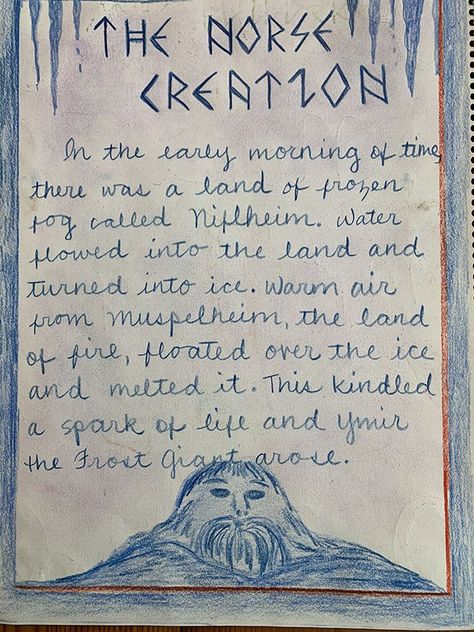 THE NORSE
CREATION
In the early morning of time,
there was a land of frozen
fog called Niflheim. Water
flowed into the land and
turned into ice. Warm air
from Muspelheim, the land
of fire, floated over the ice
and melted it. This kindled
a spark of life and Ymir
the Frost Giant arose.